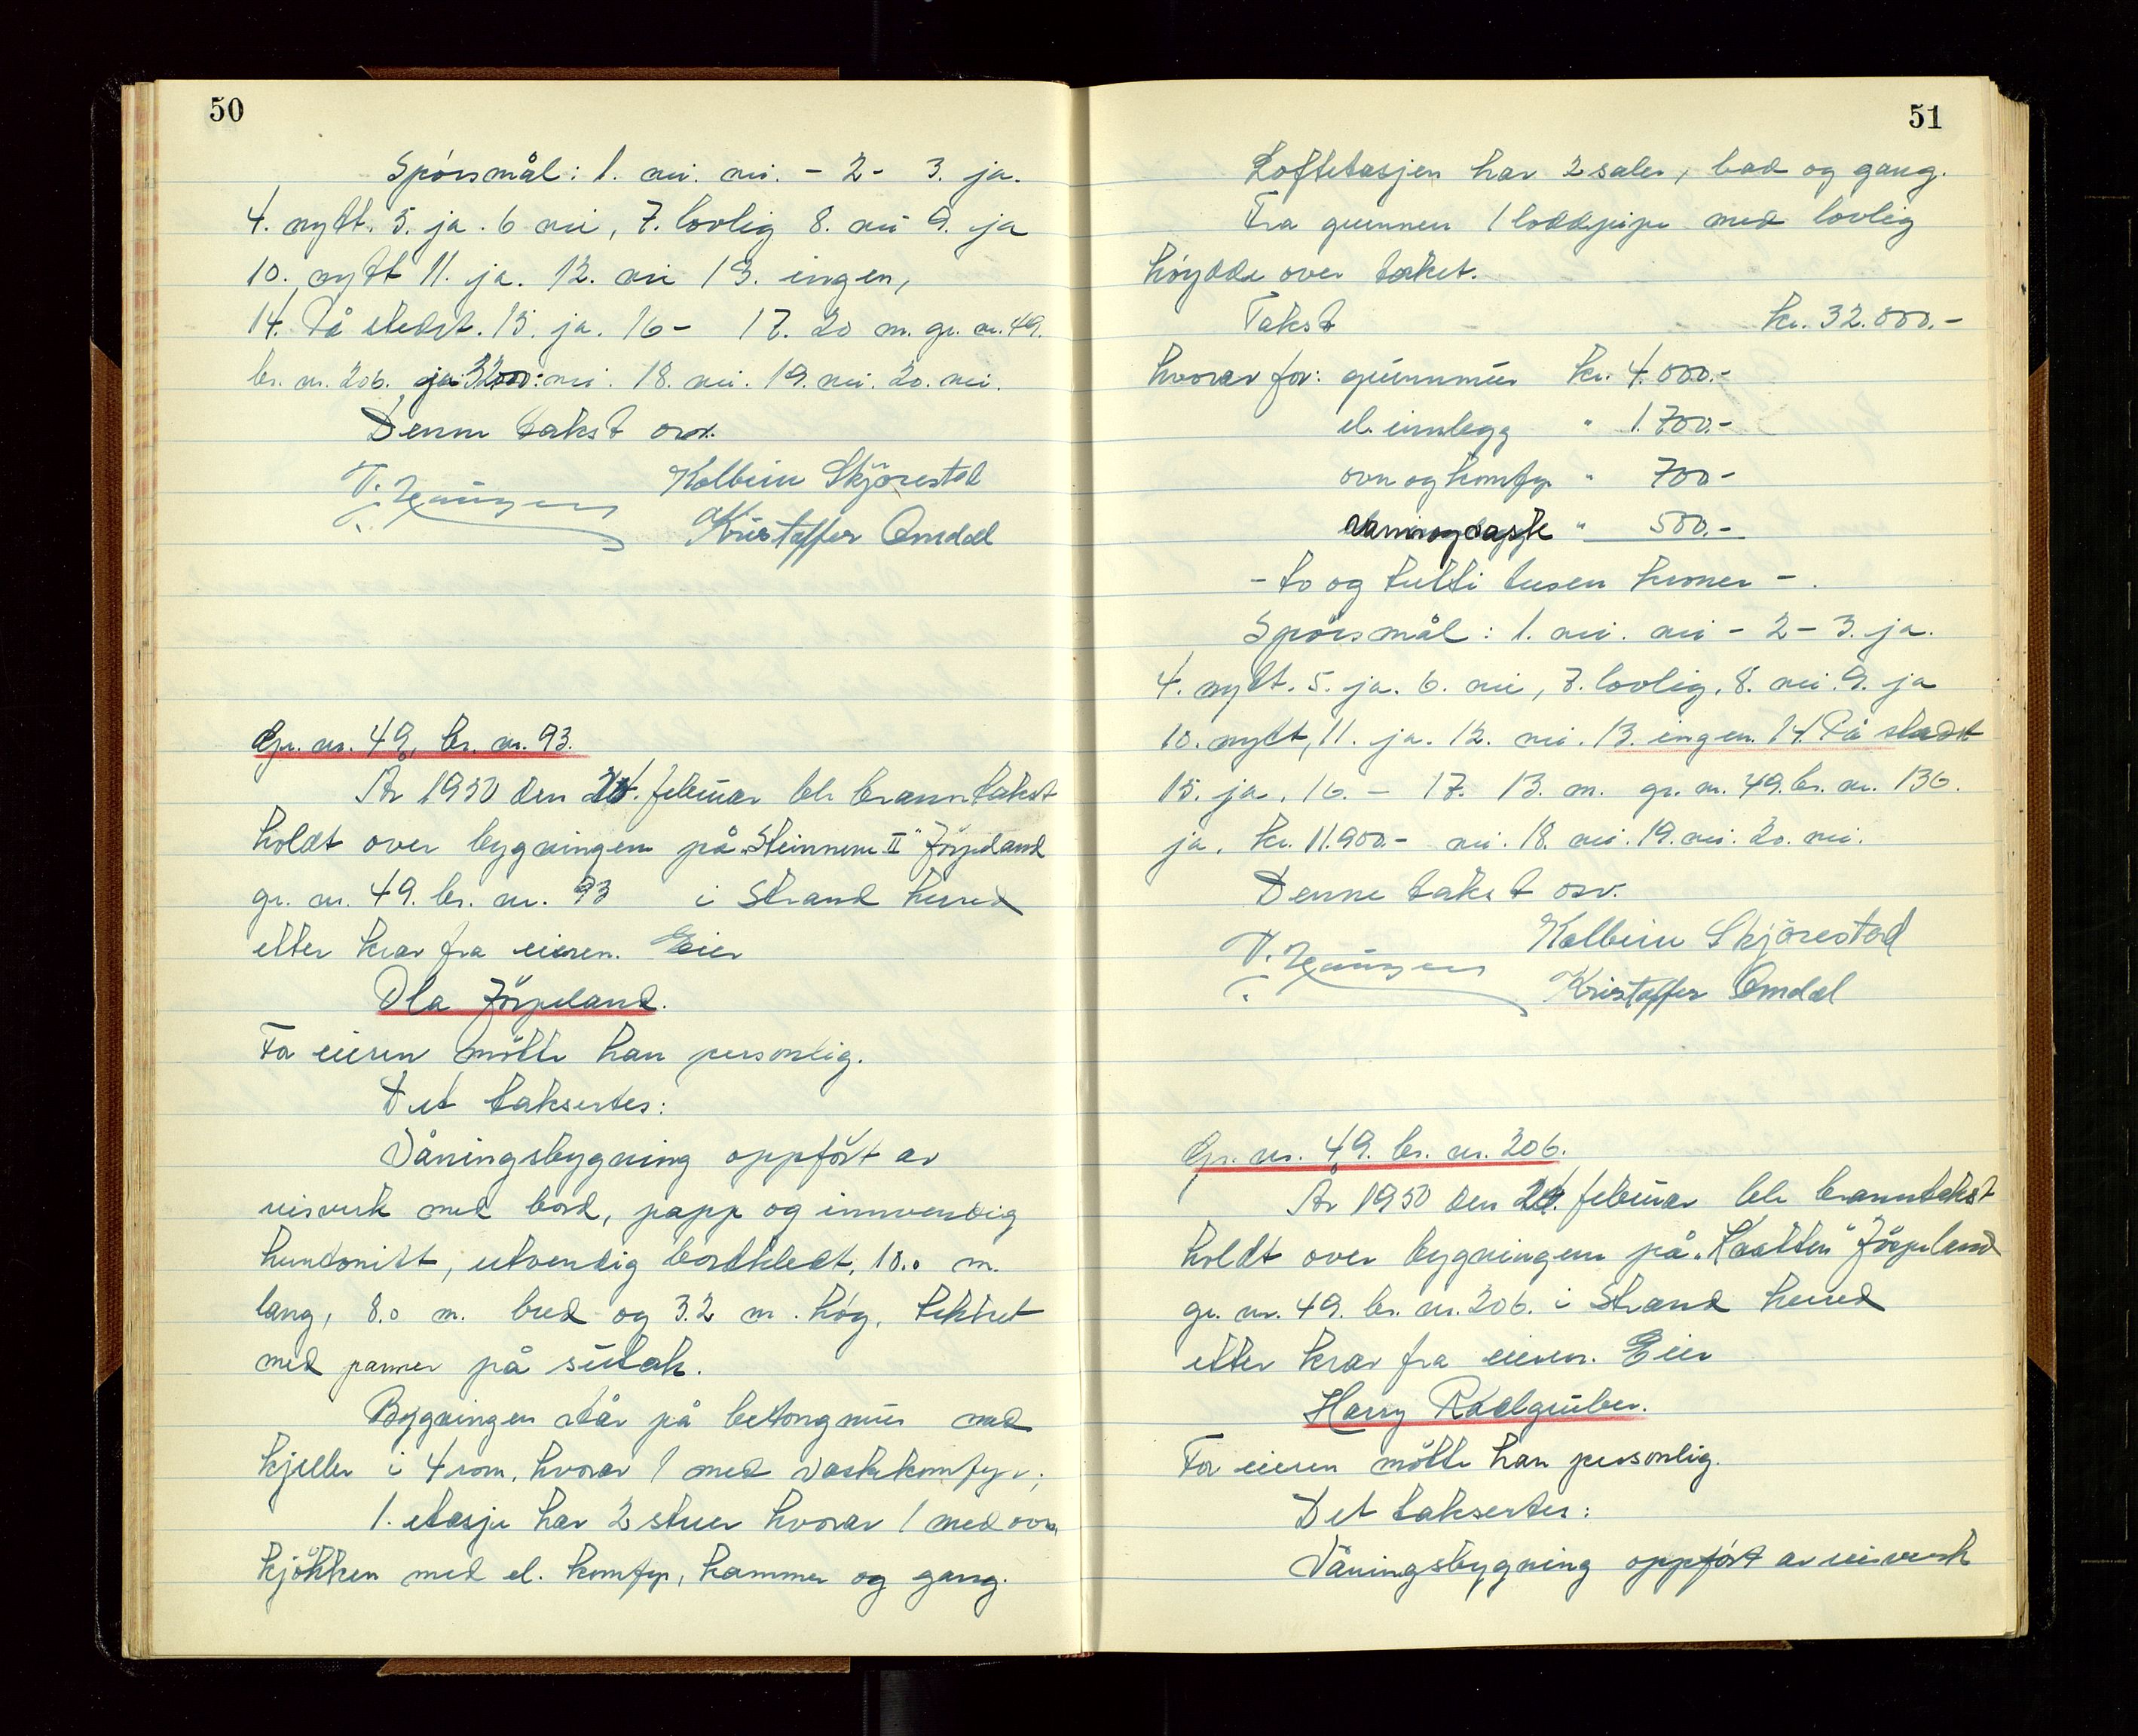 50
Spørsmål: 1. nei. nei. - 2 - 3. ja.
4. nytt. 5. ja. 6 nei, 7. lovlig 8. nei 9. ja
10. nytt 11. ja. 12. nei 13. ingen,
14. På stedet. 15. ja. 16 - 17. 20 m. gr. nr. 49.
br. nr. 206. ja 32000: nei. 18. nei. 19. nei. 20. nei.
Denne takst osv.
Kolbein Skjörestad
Kristoffer Omdal
Gr. nr. 49, br. nr. 93.
År 1950 den 24. februar ble branntakst
holdt over bygningen på "Steinmure II" Jörpeland
gr. nr. 49. br. nr. 93 i Strand herred
etter krav fra eieren. Eier
Ola Jörpeland.
For eieren mötte han personlig.
Det taksertes:
Våningsbygning oppfört av
reisverk med bord, papp og innvendig
hunsonitt, utvendig bordkledt, 10.0 m.
lang, 8.0 m. bred og 3.2 m. höy, tekket
med panner på sutak.
Bygningen står på betongmur med
kjeller i 4 rom, hvorav 1 med vaskekomfyr,
1. etasje har 2 stuer hvorav 1 med ovn,
kjökken med el. komfyr, kammer og gang.
51
Loftetasjen har 2 saler, bad og gang.
Fra grunnen 1 loddpipe med lovlig
höydde over taket.
Takst kr. 32.000.-
hvorav for: grunnmur kr. 4.000.-
el. innlegg " 1.700.-
ovn og komfyr " 700-
vann og vaske " 500.-
- to og tretti tusen kroner -.
Spörsmål: 1. nei. nei - 2 - 3. ja.
4. nytt. 5. ja. 6. nei, 7. lovlig. 8. nei. 9. ja
10. nytt, 11. ja. 12. nei. 13. ingen. 14. På stedet
15. ja. 16. - 17. 13. m. gr. nr. 49. br. nr. 136.
ja. kr. 11.900.- nei. 18. nei. 19. nei. 20. nei.
Denne takst osv.
Kolbein Skjörestad
Kristoffer Omdal
Gr. nr. 49. br. nr. 206.
År 1950 den 24. februar ble branntakst
holdt over bygningen på "Kratten" Jörpeland
gr. nr. 49. br. nr. 206. i Strand herred
etter krav fra eieren. Eier
Harry Radlgruber.
For eieren mötte han personlig.
Det taksertes:
Våningsbygning oppfört av reisverk